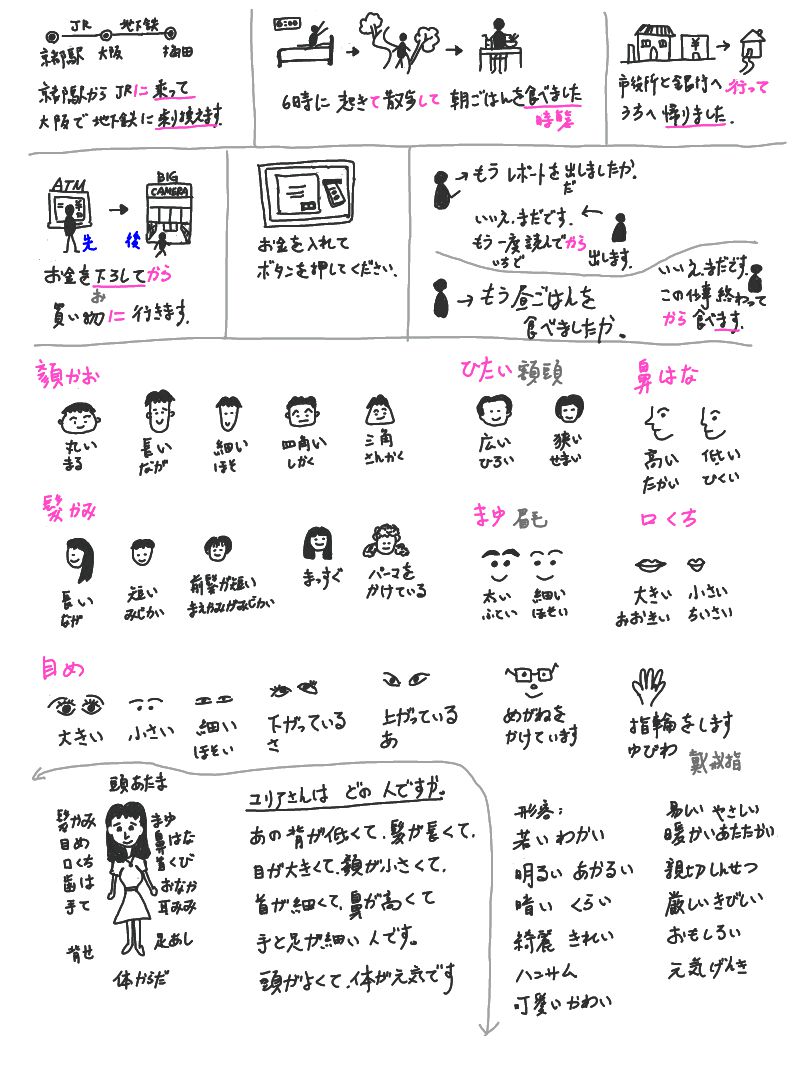 JR 地下鉄
京都駅 大阪 梅田
京都駅から JRに 乗って
大阪で 地下鉄に 乗り換えます。
6:00
6時に 起きて 散歩して 朝ごはんを食べました
時態
¥
市役所と銀行へ 行って
うちへ 帰りました。
ATM
BIG
CAMERA
¥
先 後
お金を下ろしてから
お
買い物に 行きます。
お金を入れて
ボタンを押してください。
もう レポートを 出しましたか。
だ
いいえ、まだです。
もう一度 読んでから
いちど
出します。
もう 昼ごはんを
食べましたか。
いいえ、まだです。
この仕事 終わって
から 食べます。
顔かお
丸い
まる
長い
なが
細い
ほそ
四角い
しかく
三角
さんかく
ひたい 額頭
広い
ひろい
狭い
せまい
鼻はな
高い
たかい
低い
ひくい
髪かみ
長い
なが
短い
みじかい
前髪が短い
まえかみがみじかい
まっすぐ
パーマを
かけている
まゆ 眉毛
太い
ふとい
細い
ほそい
口くち
大きい
おおきい
小さい
ちいさい
目め
大きい
小さい
細い
ほそい
下がっている
さ
上がっている
あ
めがねを
かけています
指輪をします
ゆびわ
戴戒指
頭あたま
髪かみ
目め
口くち
歯は
手て
背せ
まゆ
鼻はな
首くび
おなか
耳みみ
足あし
体からだ
ユリアさんは どの 人ですか。
あの 背が低くて、髪が長くて、
目が大きくて、顔が小さくて、
首が細くて、鼻が高くて
手と足が細い 人です。
頭がよくて、体が元気です
形容:
若い わかい
明るい あかるい
暗い くらい
綺麗 きれい
ハンサム
可愛い かわい
易しい やさしい
暖かい あたたかい
親切 しんせつ
厳しい きびしい
おもしろい
元気 げんき